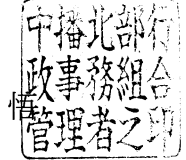 中播北部行
政事務組合
管理者之印
悟